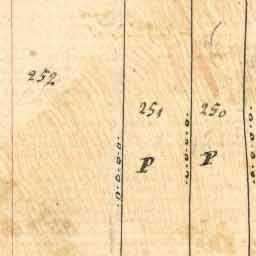 252
251
250
P
P